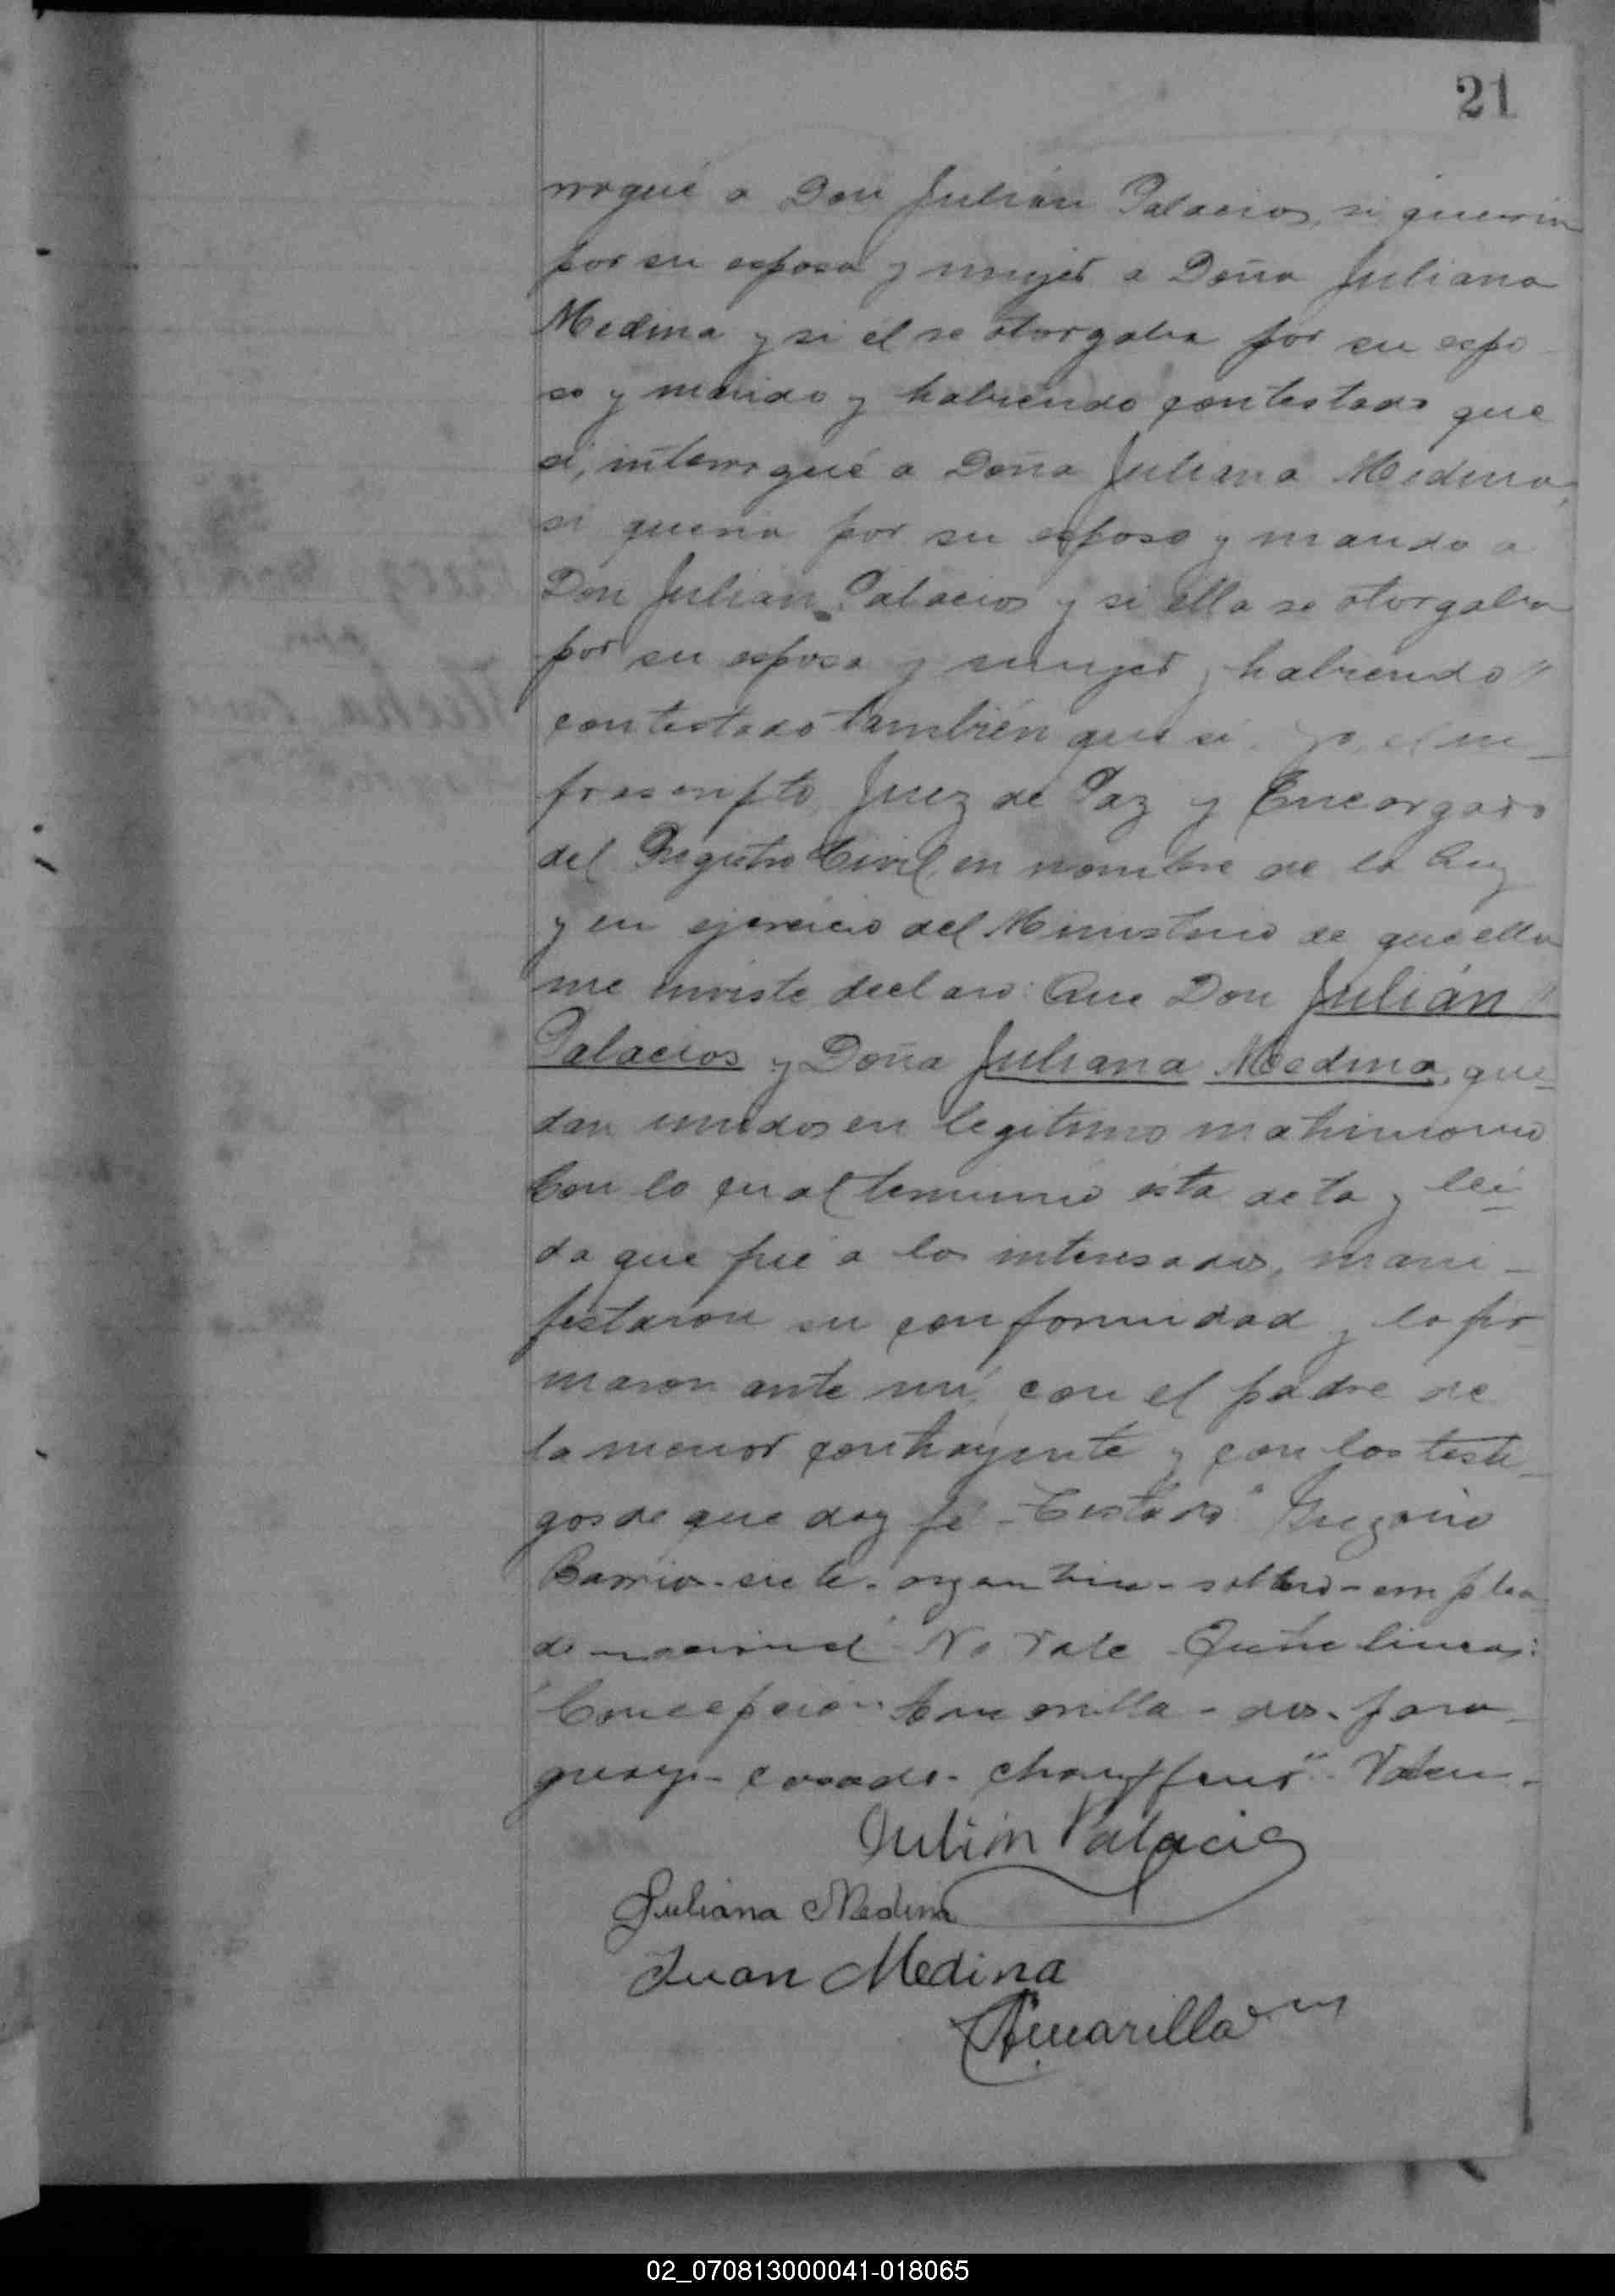 21
rrogué a Don Julián Palacios, si queria
por su esposa y mujer a Doña Juliana
Medina y si él se otorgaba por su espo
so y marido y habiendo contestado que
si, interrogué a Doña Juliana Medina,
si queria por su esposo y marido a
Don Julian Palacios y si ella se otorgaba
por su esposa y mujer y habiendo
contestado también que si. Yo, el in-
frascripto, Juez de Paz y Encargado
del Registro Civil, en nombre de la Ley
y en ejercicio del Ministerio de que ella
me inviste declaro: Que Don Julián
Palacios y Doña Juliana Medina, que-
dan unidos en legitimo matrimonio
Con lo cual terminó ésta acta y lei-
da que fué a los interesados, mani-
festaron su conformidad y la fir
maron ante mi, con el padre de
la menor contrayente y con los testi-
gos de que doy fé - Testado "Gregorio
Barrios - siete - argentino - soltero - emplea
do nacional" No Vale - Entre lineas:
"Concepción Amarilla - dos - para-
guayo - casado - chauffeur" - Valen -
Julián Palacio
Juliana Medina
Juan Medina
Amarilla
02_070813000041-018065